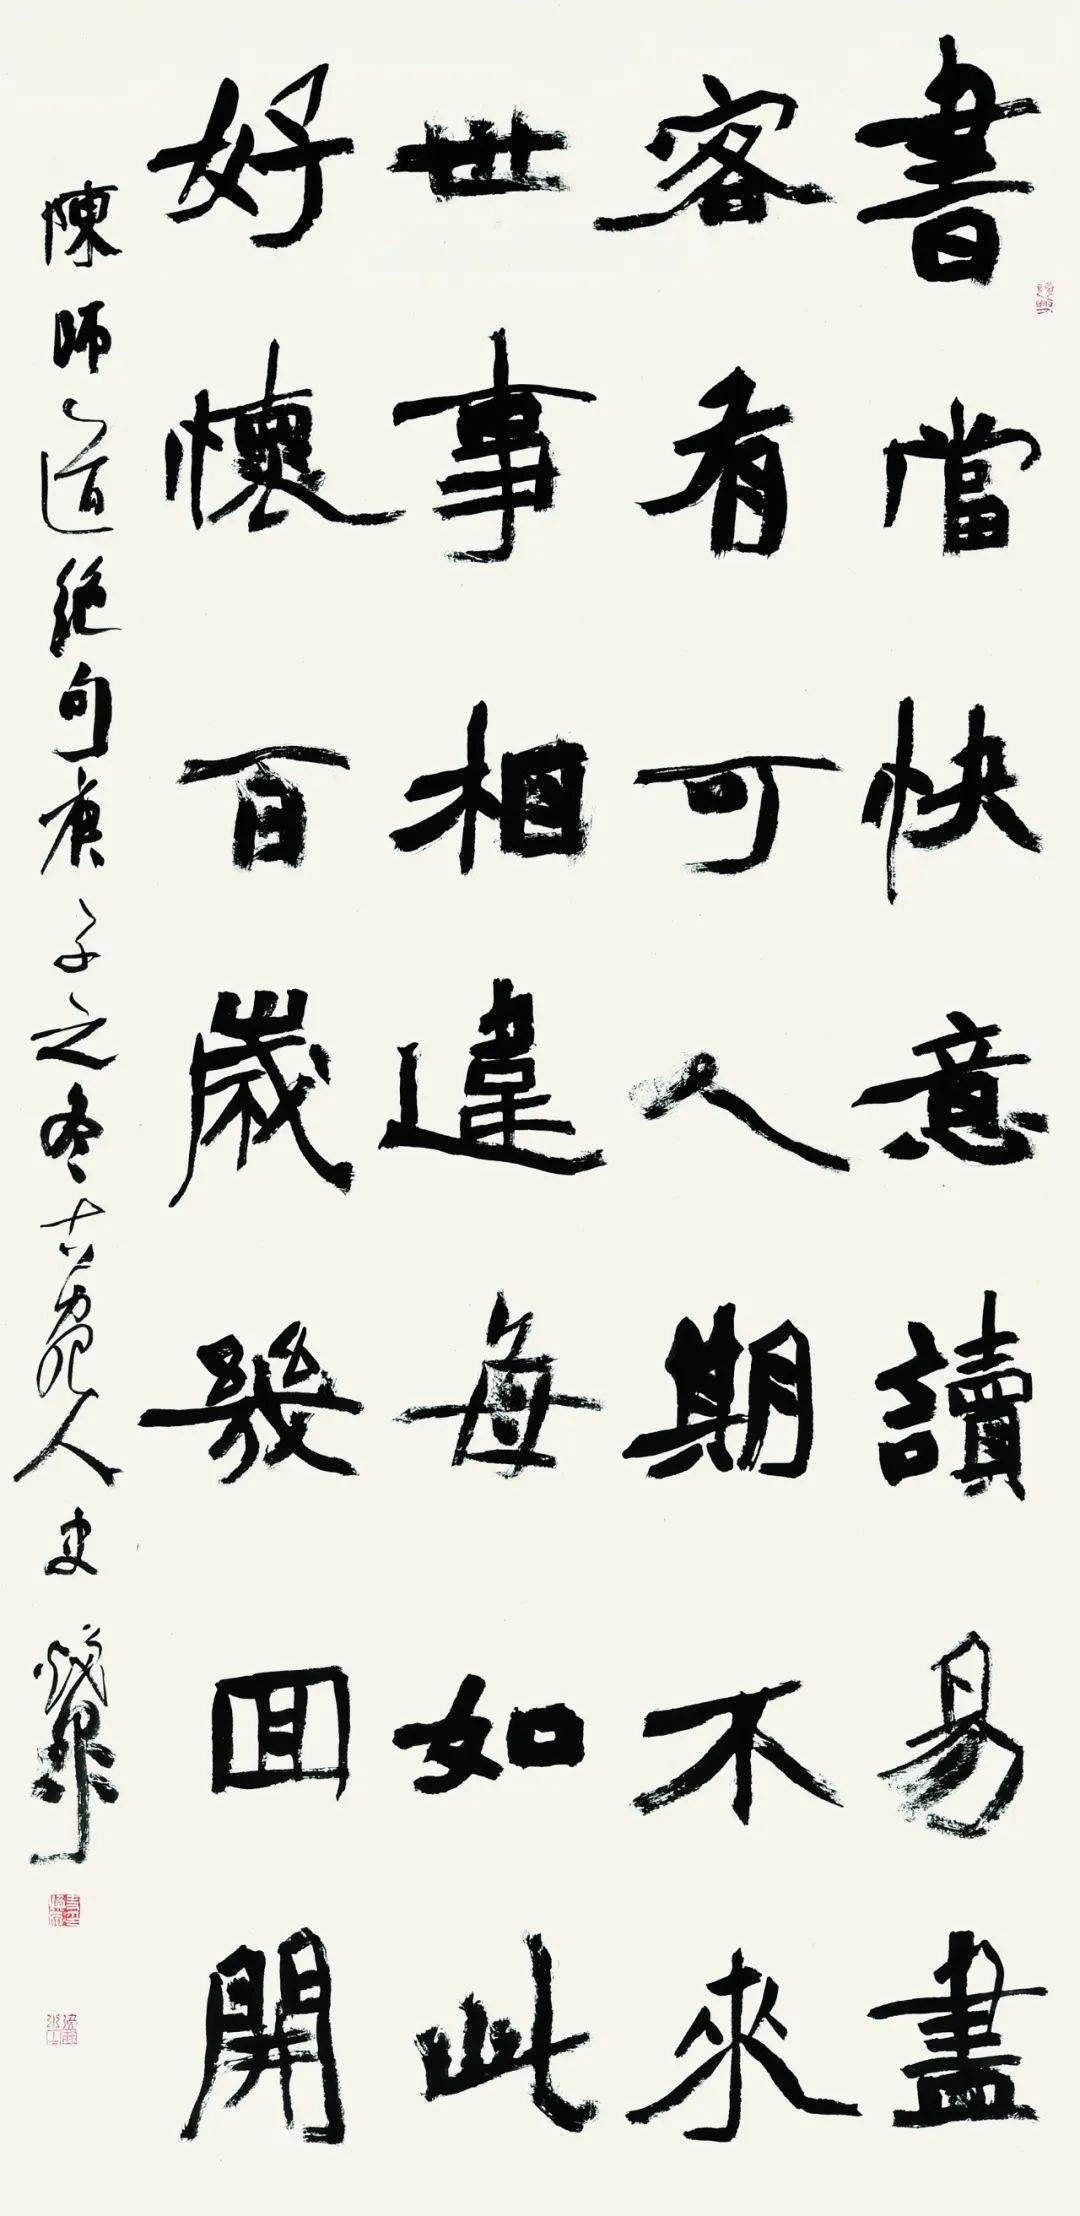 書當快意讀易盡
客有可人期不來
世事相違每如此
好懷百歲幾回開
陳師道絕句庚子之冬古宛人史